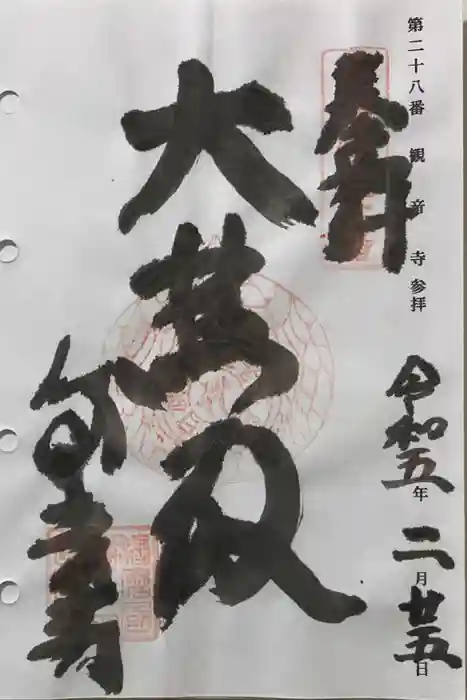 第二十八番 観音寺参拝
奉拝
令和五年二月廿五日
大悲殿
観音寺